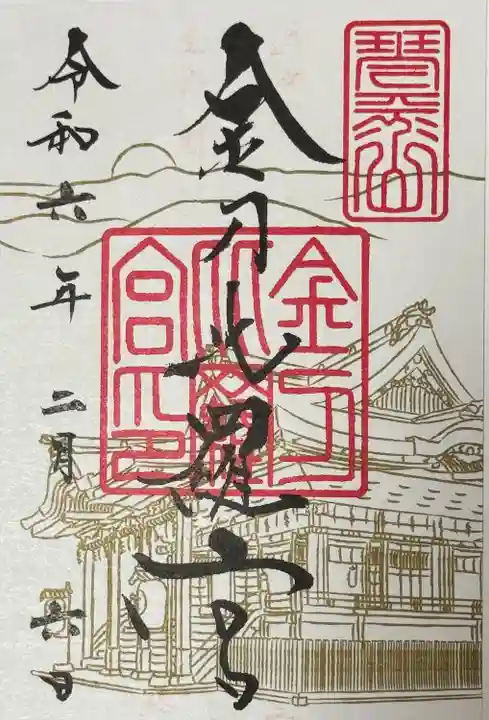 琴平山
金刀比羅宮
金刀
比羅
宮印
令和六年二月六日